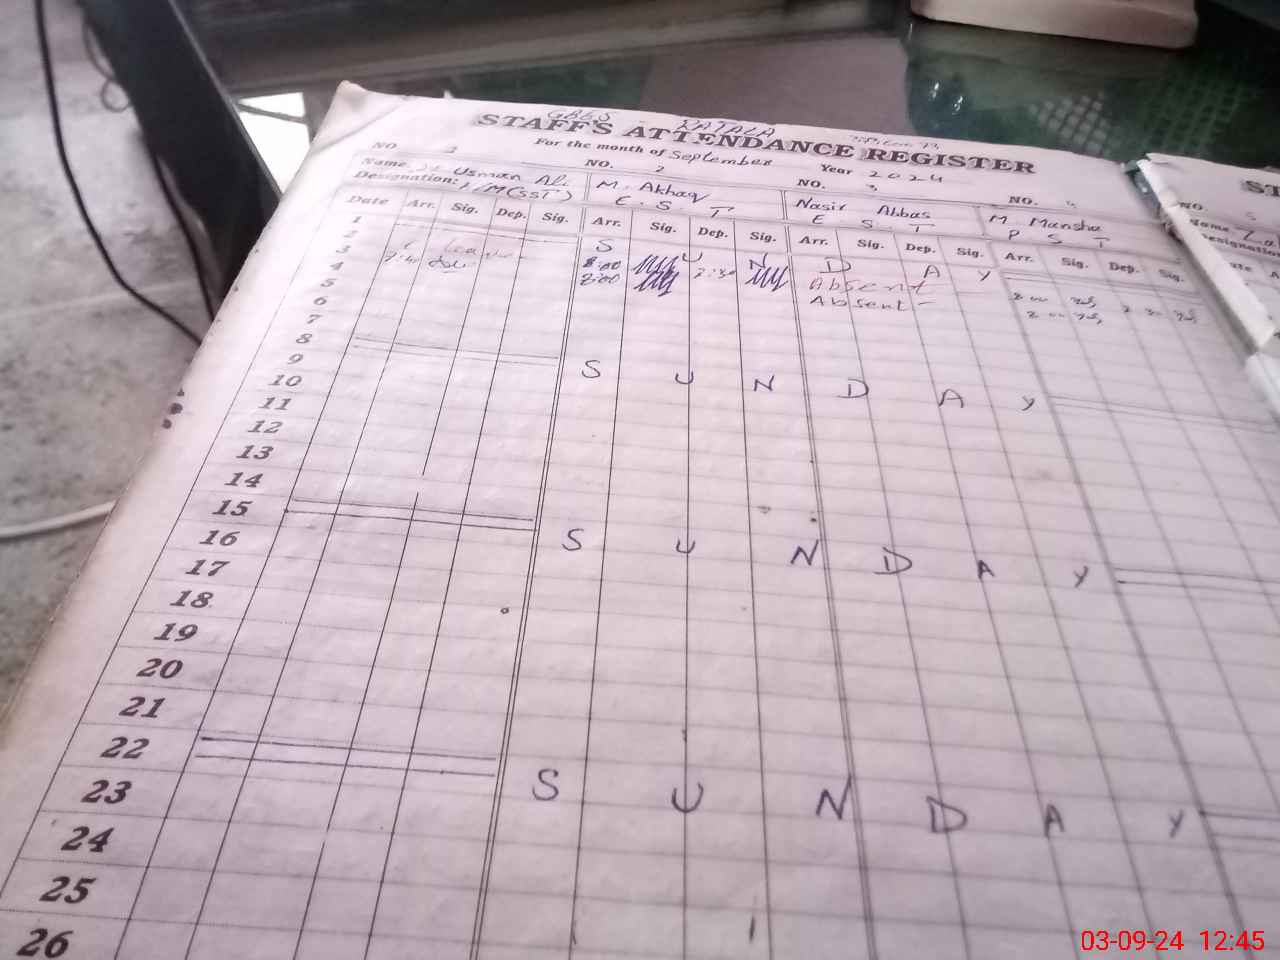 GBES RATALA
STAFF'S ATTENDANCE REGISTER
For the month of September Year 2024
NO. 2 NO. 3 NO. 4
Name Usman Ali M. Akhaq Nasir Abbas M. Mansha
Designation: (SST) E. S. T E. S. T P S T
Date Arr. Sig. Dep. Sig. Arr. Sig. Dep. Sig. Arr. Sig. Dep. Sig. Arr. Sig. Dep. Sig.
1 S U N D A Y
2 Leave 8:00 2:30 Absent 8 00 2 30
3 7:40 8:00 Absent 8 00
4
5
6
7
8 S U N D A Y
9
10
11
12
13
14
15 S U N D A Y
16
17
18
19
20
21
22 S U N D A Y
23
24
25
26
ST
NO. 5
Name
Designation
Date
03-09-24 12:45